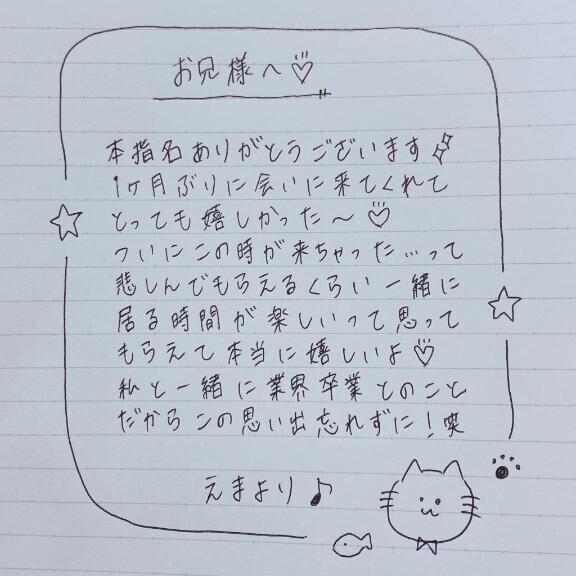 お兄様へ♡
本指名ありがとうございます
1ヶ月ぶりに会いに来てくれて
とっても嬉しかった〜♡
ついにこの時が来ちゃった…って
悲しんでもらえるくらい一緒に
居る時間が楽しいって思って
もらえて本当に嬉しいよ♡
私と一緒に業界卒業とのこと
だからこの思い出忘れずに!笑
えまより♪